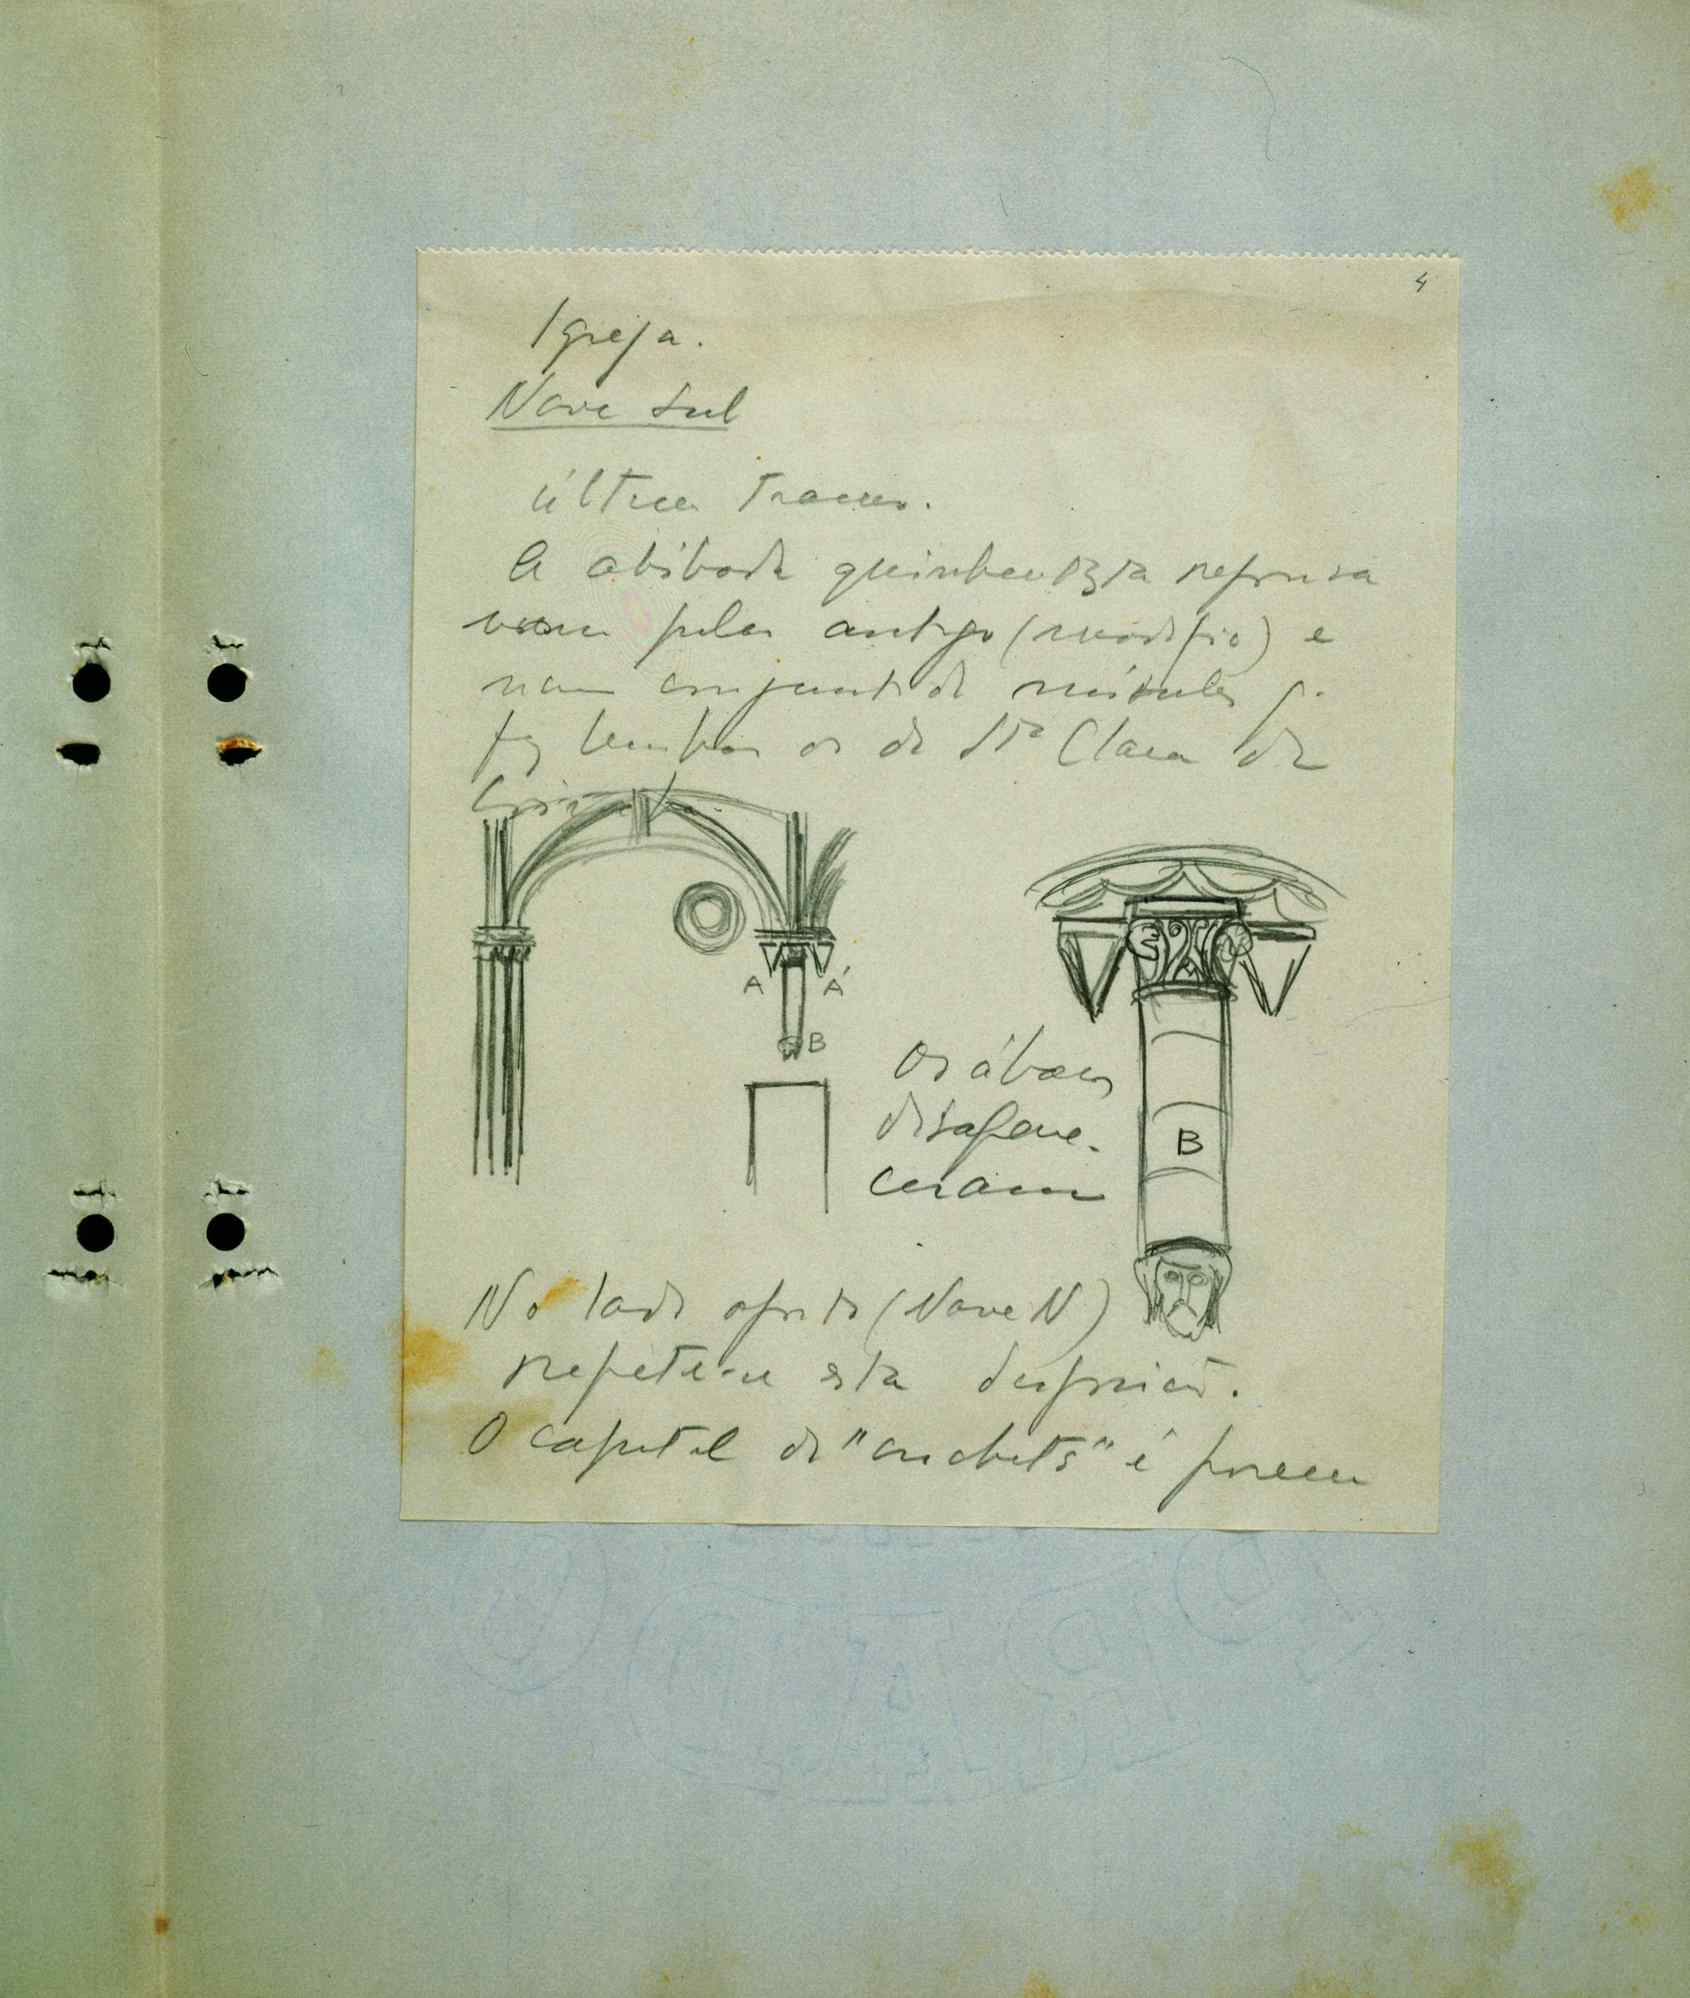 4
Igreja.
Nave Sul
última tramo.
A abóbada quinhentista repousa
num pilar antigo (modifio) e
num conjunto de mísulas q.
faz lembrar os de Sta Clara de
A A'
B
Os ábacos
desapare-
ceram
B
No lado oposto (Nave N)
repete-se esta disposição.
O capitel de "crochets" é porem